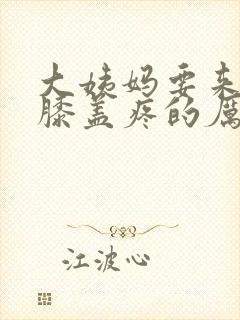 大姨妈要来
膝盖疼的厉
江波心